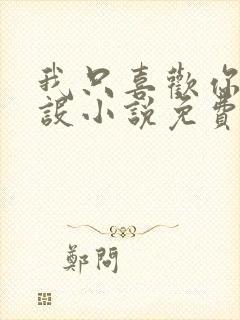 我只喜歡你
設小說免費
鄭問